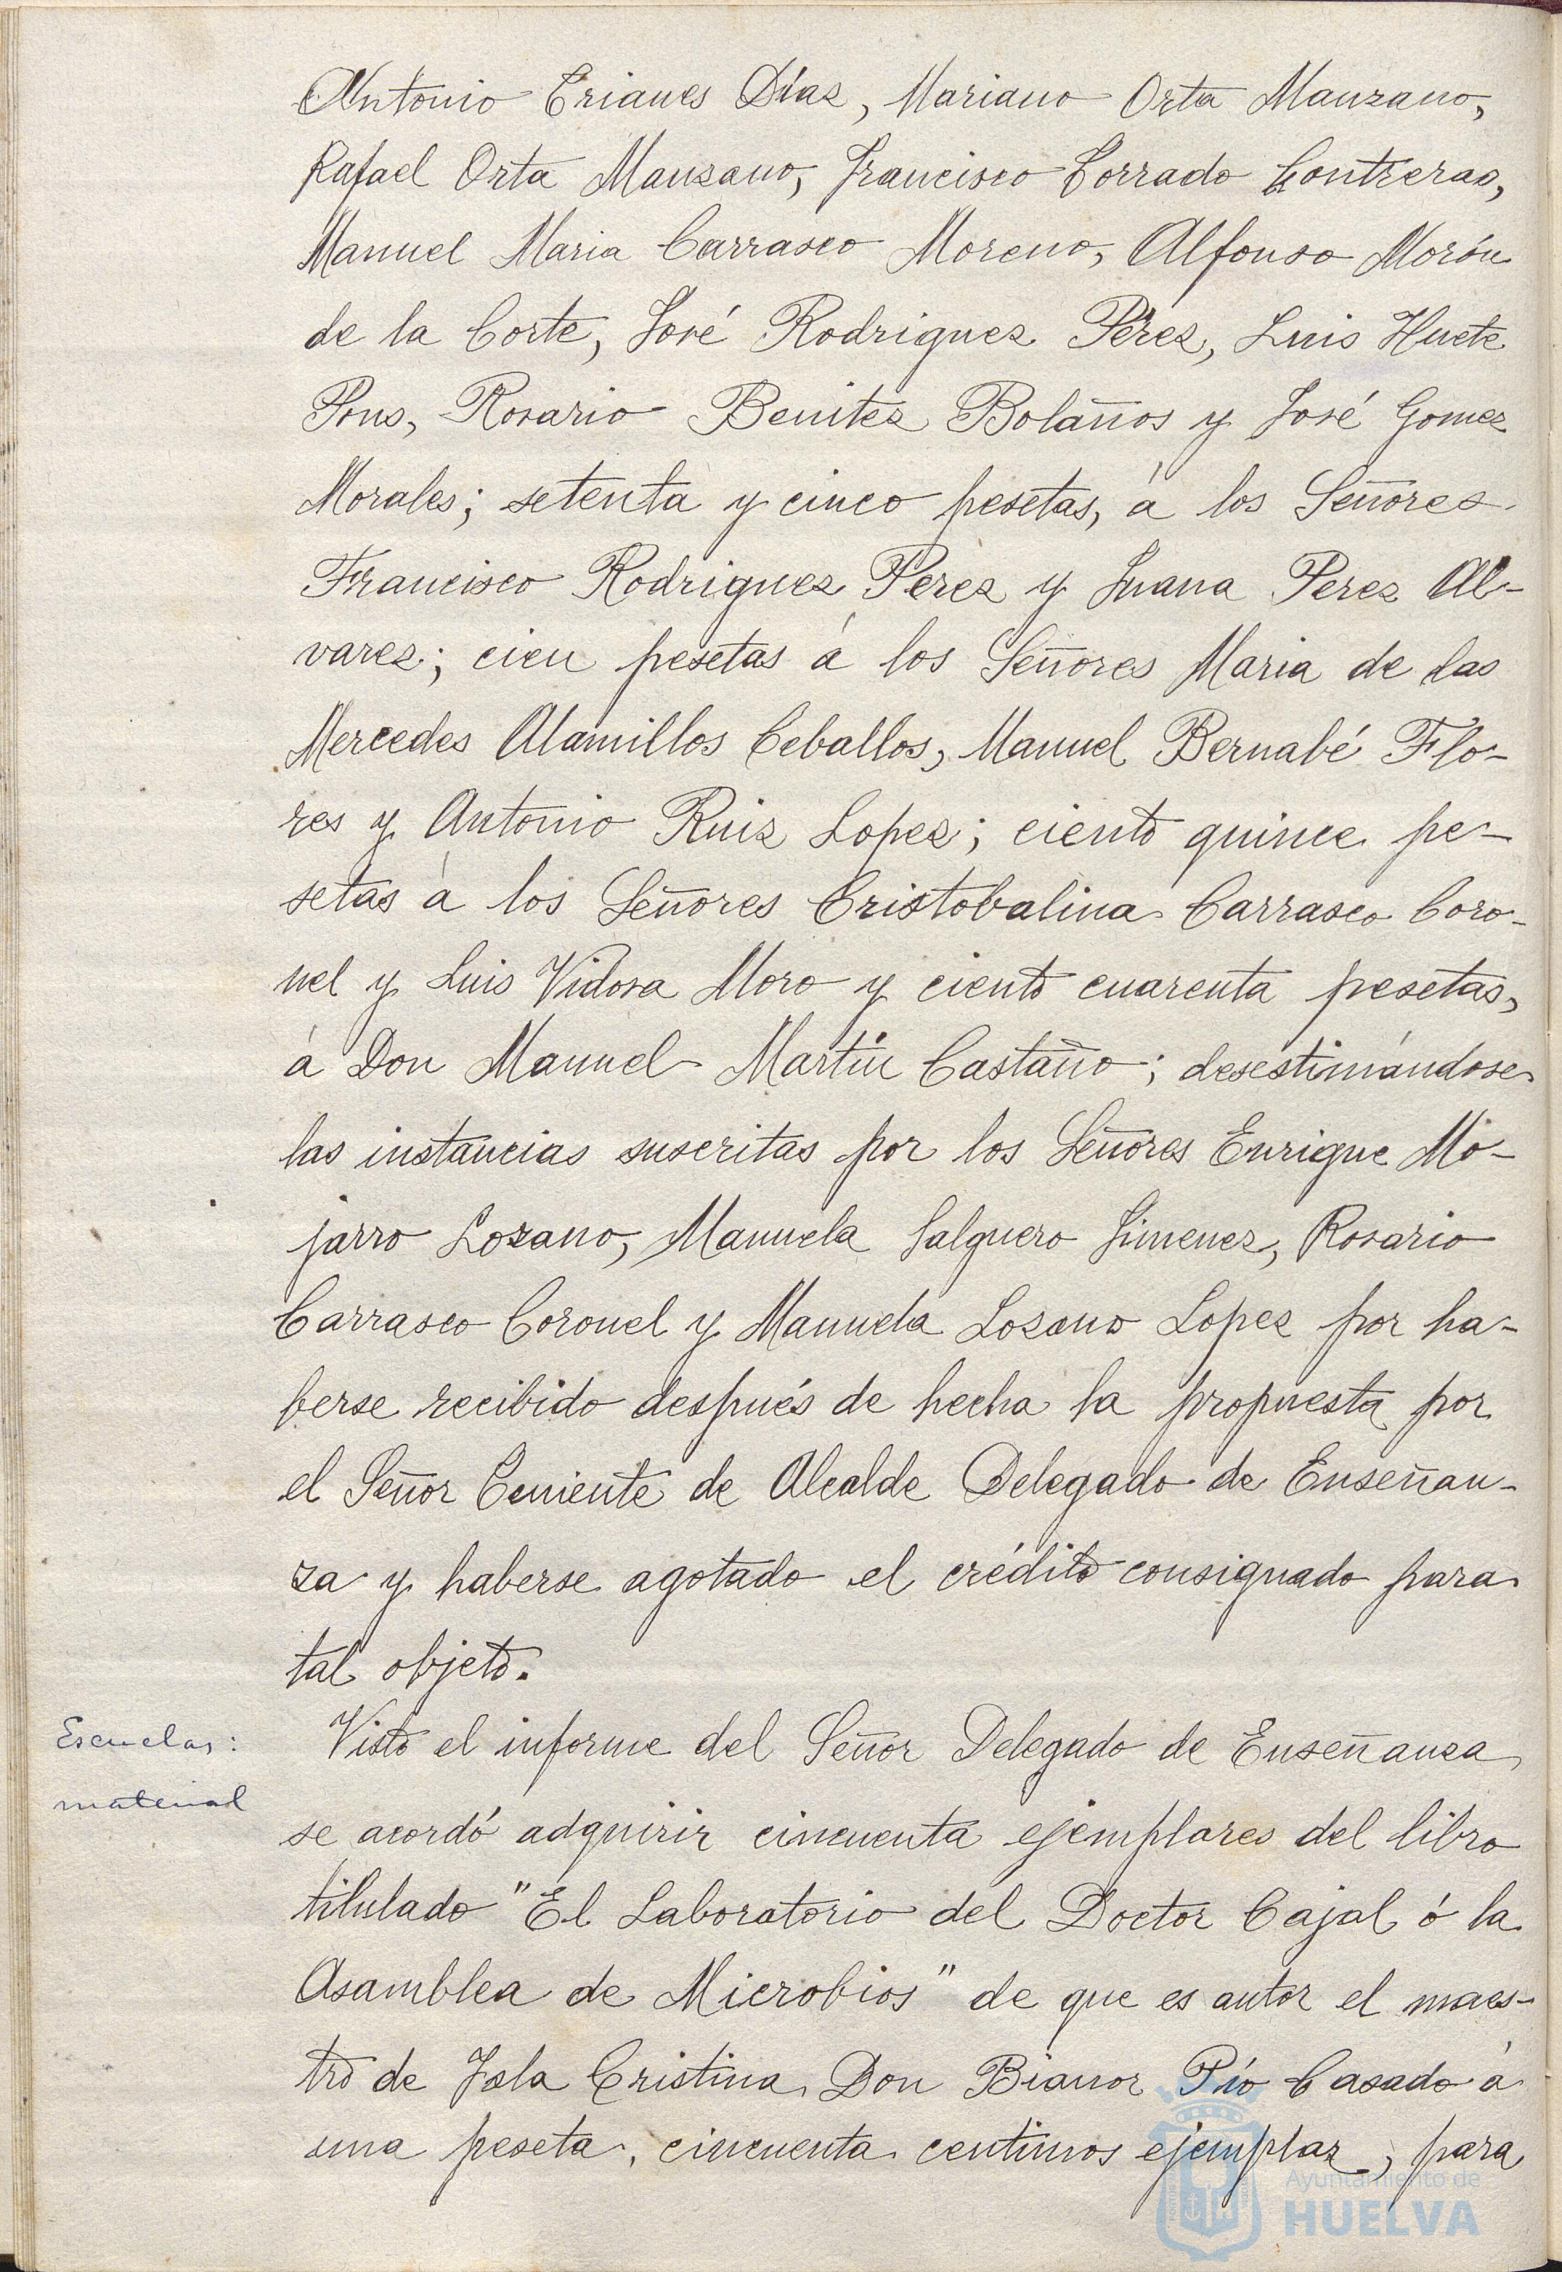 Antonio Trianes Díaz, Mariano Orta Manzano,
Rafael Orta Manzano, Francisco Torrado Contreras,
Manuel Maria Carrasco Moreno, Alfonso Morón
de la Corte, José Rodriguez Pérez, Luis Huete
Pons, Rosario Benitez Bolaños y José Gomez
Morales; setenta y cinco pesetas, á los Señores
Francisco Rodriguez Perez y Juana Perez Al-
varez; cien pesetas á los Señores Maria de las
Mercedes Alamillos Ceballos, Manuel Bernabé Flo-
res y Antonio Ruiz Lopez; ciento quince pe-
setas á los Señores Cristobalina Carrasco Coro-
nel y Luis Vidosa Moro y ciento cuarenta pesetas,
á Don Manuel Martín Castaño; desestimándose
las instancias suscritas por los Señores Enrique Mo-
jarro Lozano, Manuela Salguero Jimenez, Rosario
Carrasco Coronel y Manuela Lozano Lopez por ha-
berse recibido después de hecha la propuesta por
el Señor Teniente de Alcalde Delegado de Enseñan-
za y haberse agotado el crédito consignado para
tal objeto.
Escuelas:
material
Visto el informe del Señor Delegado de Enseñanza
se acordó adquirir cincuenta ejemplares del libro
titulado "El Laboratorio del Doctor Cajal ó la
Asamblea de Microbios" de que es autor el maes-
tro de Isla Cristina Don Bianor Pío Casado á
una peseta, cincuenta centimos ejemplar, para
Ayuntamiento de
HUELVA